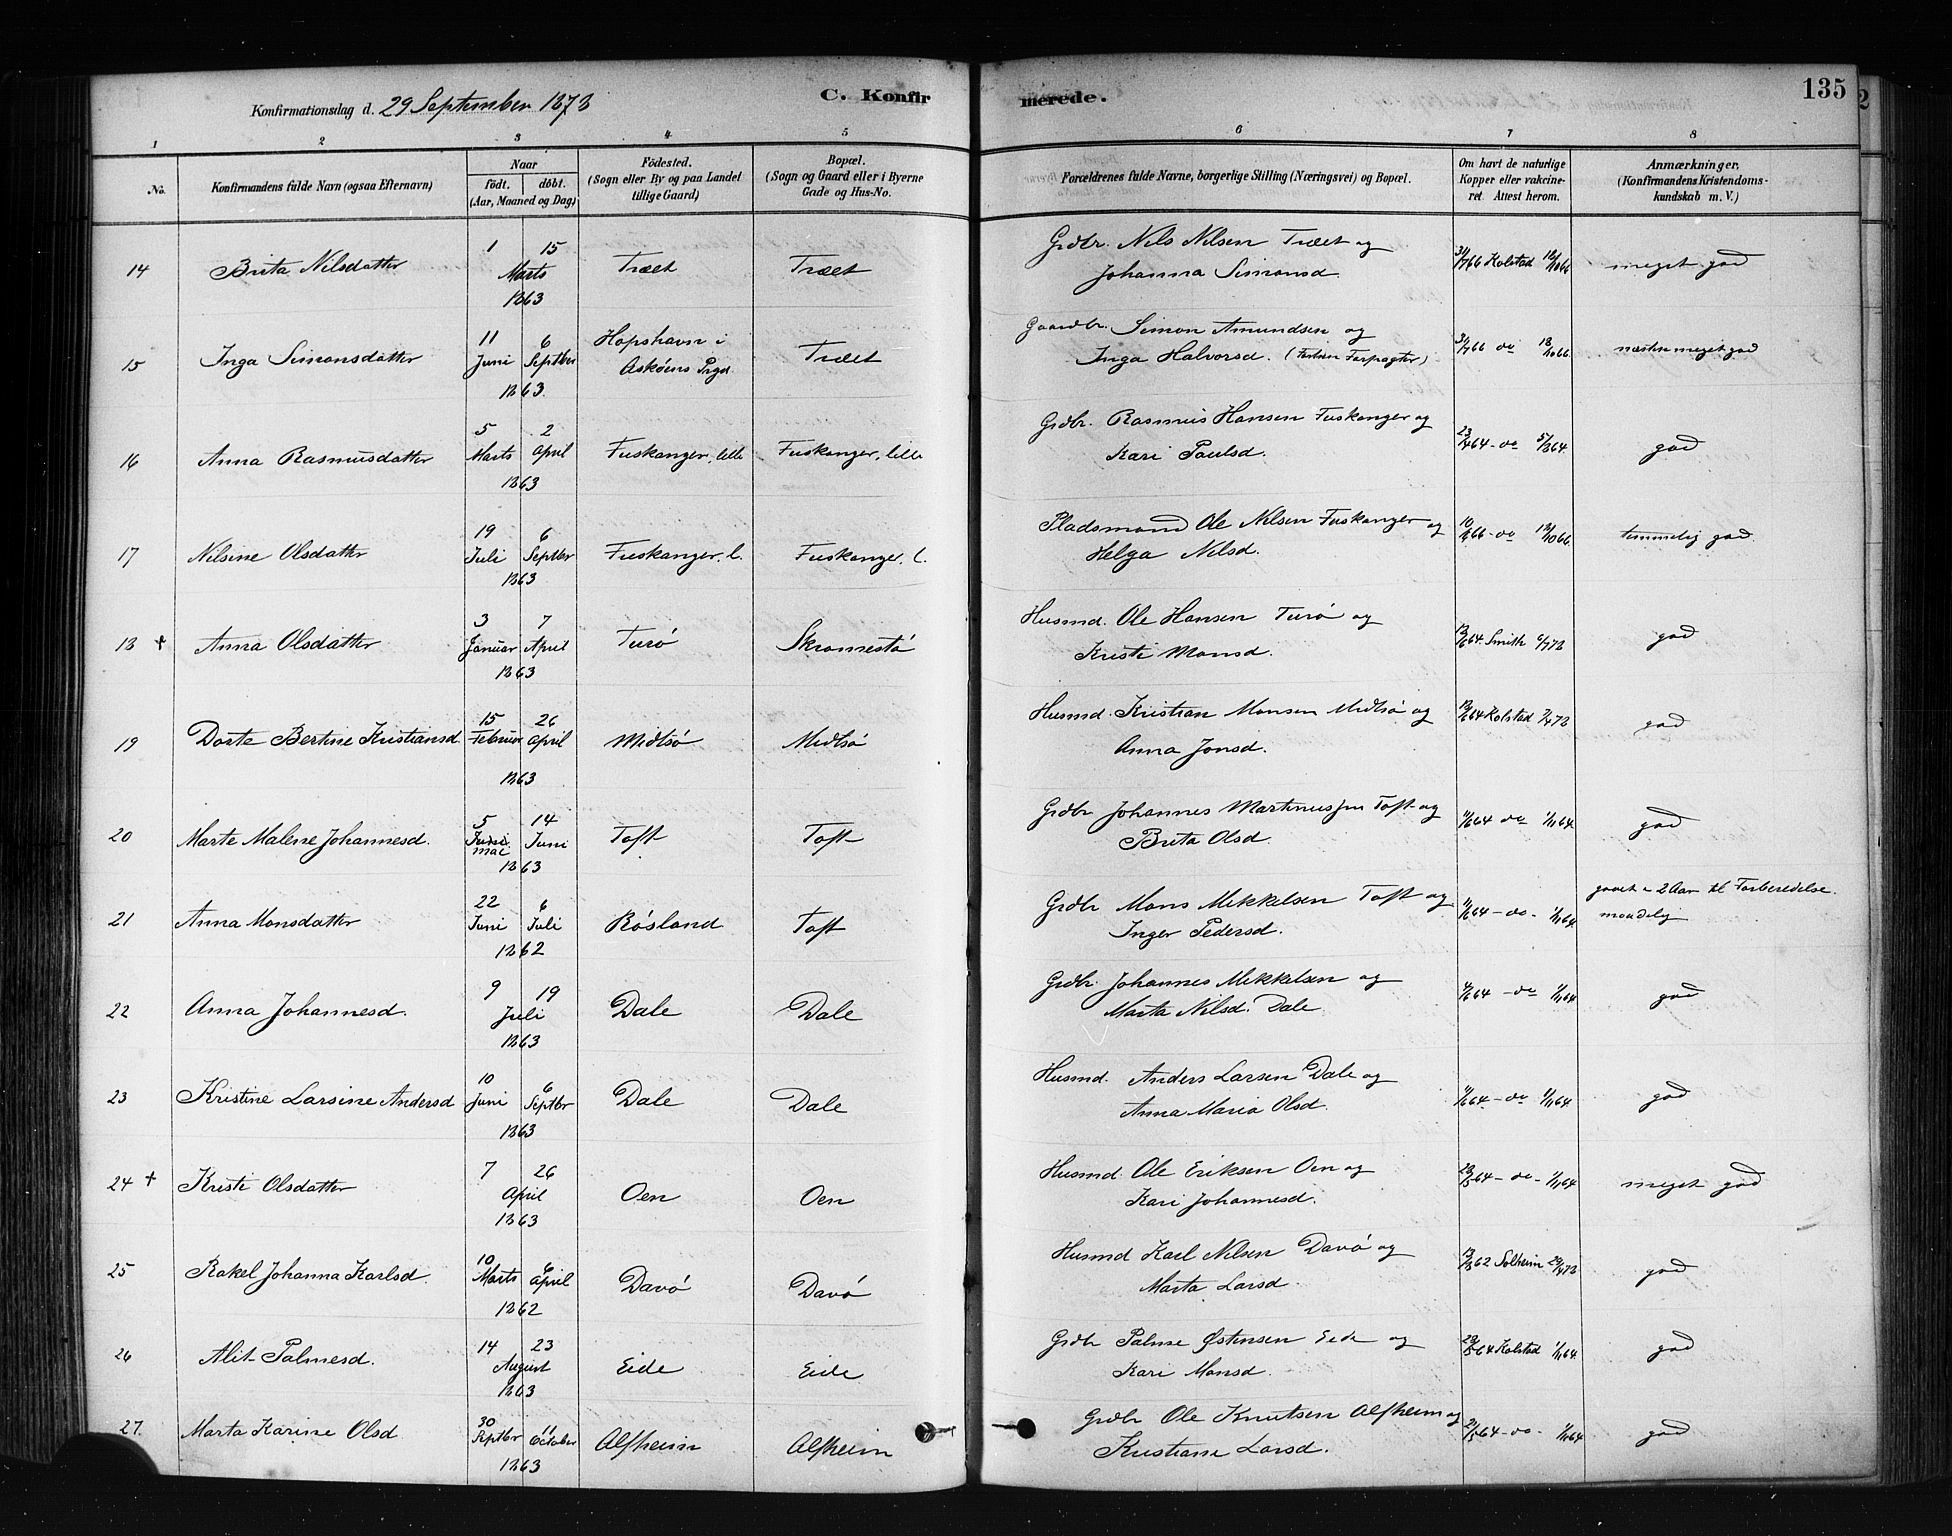 Konfirmationsdag d. 29 September 1878
C. Konfirmerede.
135
1 2 3 4 5 6 7 8
No.
Konfirmandens fulde Navn (ogsaa Efternavn)
Naar
födt. döbt.
(Aar, Maaned og Dag)
Födested.
(Sogn eller By og paa Landet
tillige Gaard)
Bopæl.
(Sogn og Gaard eller i Byerne
Gade og Hus-No.
Forældrenes fulde Navne, borgerlige Stilling (Næringsvei) og Bopæl.
Om havt de naturlige
Kopper eller vakcine-
ret. Attest herom.
Anmærkninger,
(Konfirmandens Kristendoms-
kundskab m. V.)
14 Brita Nilsdatter 1 15 Marts 1863 Træet Træet Grdbr. Nils Nilsen Træet og
Johanna Simonsd. 31/7 66 Kolstad 18/10 66 meget god
15 Inga Simonsdatter 11 Juni 6 Septbr 1863 Hopshavn i
Askøens Prgd. Træet Gaardbr. Simon Amundsen og
Inga Halvorsd. (Forhen Forpagter) 31/7 66 do 18/10 66. næsten meget god
16 Anna Rasmusdatter 5 Marts 2 April 1863 Fuskanger, lille Fuskanger, lille Grdbr. Rasmus Hansen Fuskanger og
Kari Paulsd. 64 - do god
17 Nilsine Olsdatter 19 Juli 6 Septbr 1863 Fuskanger, l. Fuskanger, l. Pladsmand Ole Nilsen Fuskanger og
Helga Nilsd. 66 - do 18/10 66. temmelig god.
18 + Anna Olsdatter 3 Januar 7 April 1863 Turø Skramestø Husmd. Ole Hansen Turø og
Kristi Monsd. 64. Smith god
19 Dorte Bertine Kristiansd. 15 Februar 26 April 1863 Midtsø Midtsø Husmd. Kristian Monsen Midtsø og
Anna Jonsd. 64 Kolstad god
20 Marte Malene Johannesd. 5 Juni mai 14 Juni 1863 Toft Toft Grdbr Johannes Martinussen Toft og
Brita Olsd. 64 do 1/11 64. god
21 Anna Monsdatter 22 Juni 6 Juli 1862 Røsland Toft Grdbr Mons Mikkelsen Toft og
Inger Pedersd. 64 - do - 1/11 64. gaaet 2 Aar til Forberedelse.
maadelig
22 Anna Johannesd. 9 19 Juli 1863 Dale Dale Grdbr. Johannes Mikkelsen og
Marta Nilsd. Dale 64 - do 1/11 64 god
23 Kristine Larsine Andersd 10 Juni 6 Septbr 1863 Dale Dale Husmd. Anders Larsen Dale og
Anna Maria Olsd. 64 - do 1/11 64 god
24 + Kristi Olsdatter 7 26 April 1863 Oen Oen Husmd. Ole Eriksen Oen og
Kari Johannesd. 64 - do - 1/11 64 meget god
25 Rakel Johanna Karlsd. 10 Marts 6 April 1862 Davø Davø Husmd Karl Nilsen Davø og
Marta Larsd. 62 Solheim god
26 Alit Palmesd. 14 23 August 1863 Eide Eide Grdbr Palme Østensen Eide og
Kari Monsd. 64 Kolstad 1/11 64. god
27. Marta Karine Olsd 30 Septbr 11 October 1863 Alfheim Alfheim Grdbr Ole Knutsen Alfheim og
Kristiane Larsd. 64 - do - 1/11 64 god